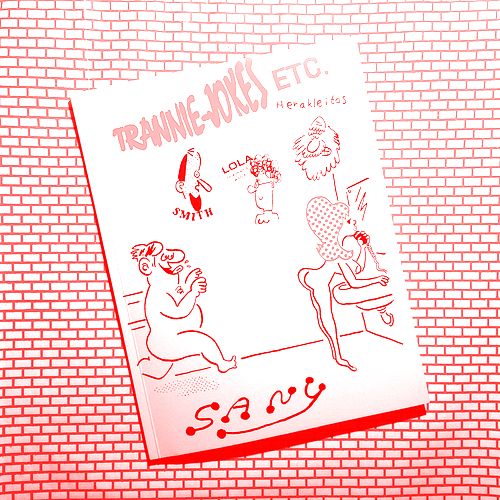 TRANNIE-JOKES ETC.
Herakleitos
LOLA
SMITH
SANY